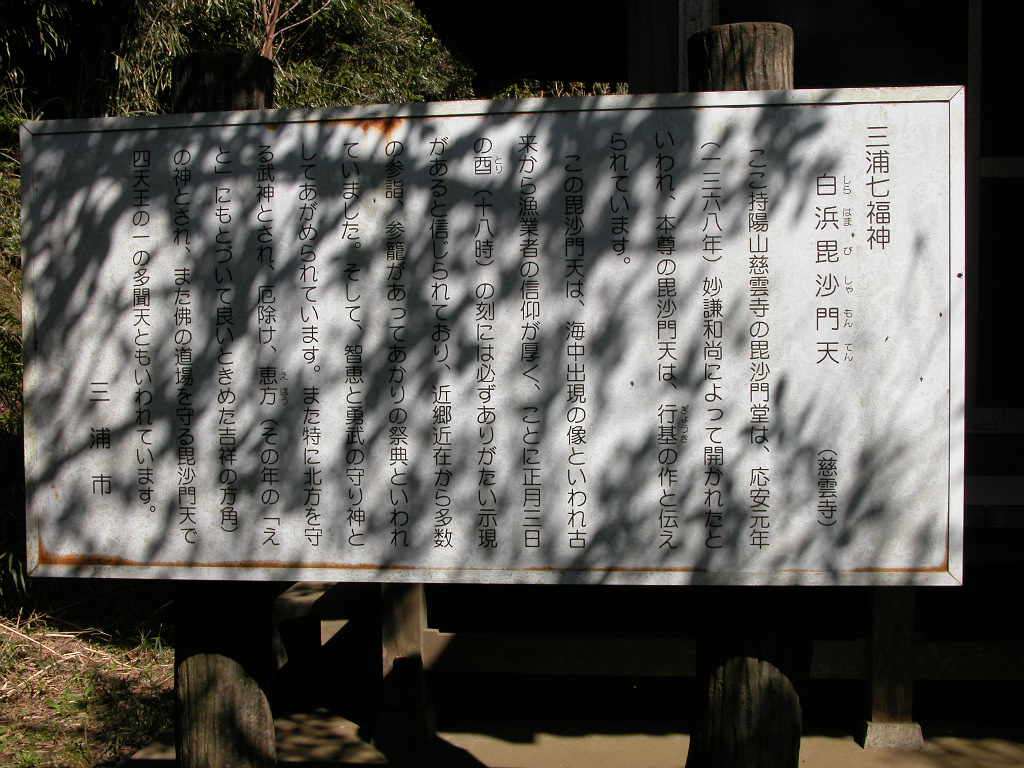 三浦七福神
白浜毘沙門天
しら はま び しゃ もん てん
(慈雲寺)
ここ持陽山慈雲寺の毘沙門堂は、応安元年
(一三六八年)妙謙和尚によって開かれたと
いわれ、本尊の毘沙門天は、行基の作と伝え
ぎょうき
られています。
この毘沙門天は、海中出現の像といわれ古
来から漁業者の信仰が厚く、ことに正月三日
の酉(十八時)の刻には必ずありがたい示現
とり
があると信じられており、近郷近在から多数
の参詣、参籠があってあかりの祭典といわれ
ていました。そして、智恵と勇武の守り神と
してあがめられています。また特に北方を守
る武神とされ、厄除け、恵方(その年の「え
え ほう
と」にもとづいて良いときめた吉祥の方角)
の神とされ、また佛の道場を守る毘沙門天で
四天王の一の多聞天ともいわれています。
三浦市